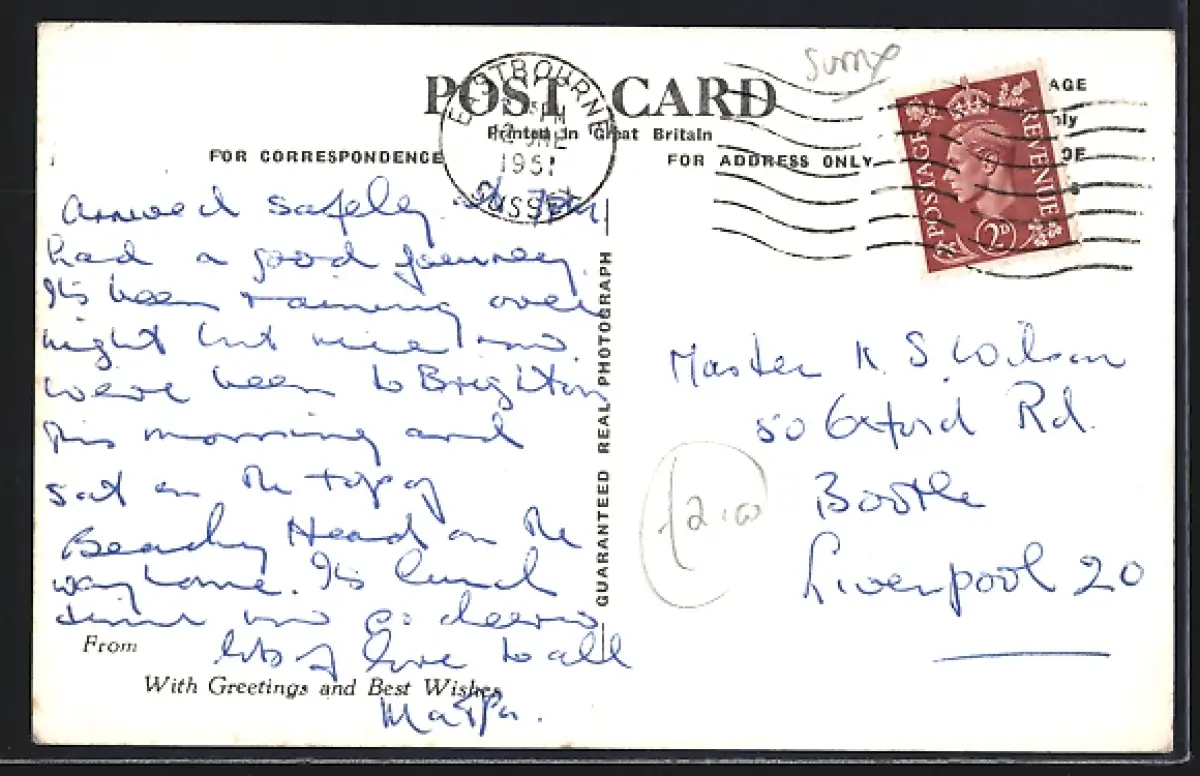 Surrey
POST CARD
Printed in Great Britain
FOR CORRESPONDENCE
FOR ADDRESS ONLY
EASTBOURNE
PM
JNE
1951
SUSSEX
AGE
nly
OF
POSTAGE
REVENUE
2D
Arrived safely
had a good journey.
Its been raining over
night but nice now.
weve been to Brighton
this morning and
sat on the top of
Beachy Head on the
way home. Its lunch
time now so cheerio
lots of love to all
Ma & Pa.
From
With Greetings and Best Wishes
GUARANTEED REAL PHOTOGRAPH
Master K. S Wilson
50 Oxford Rd.
Bootle
Liverpool 20
£2.00